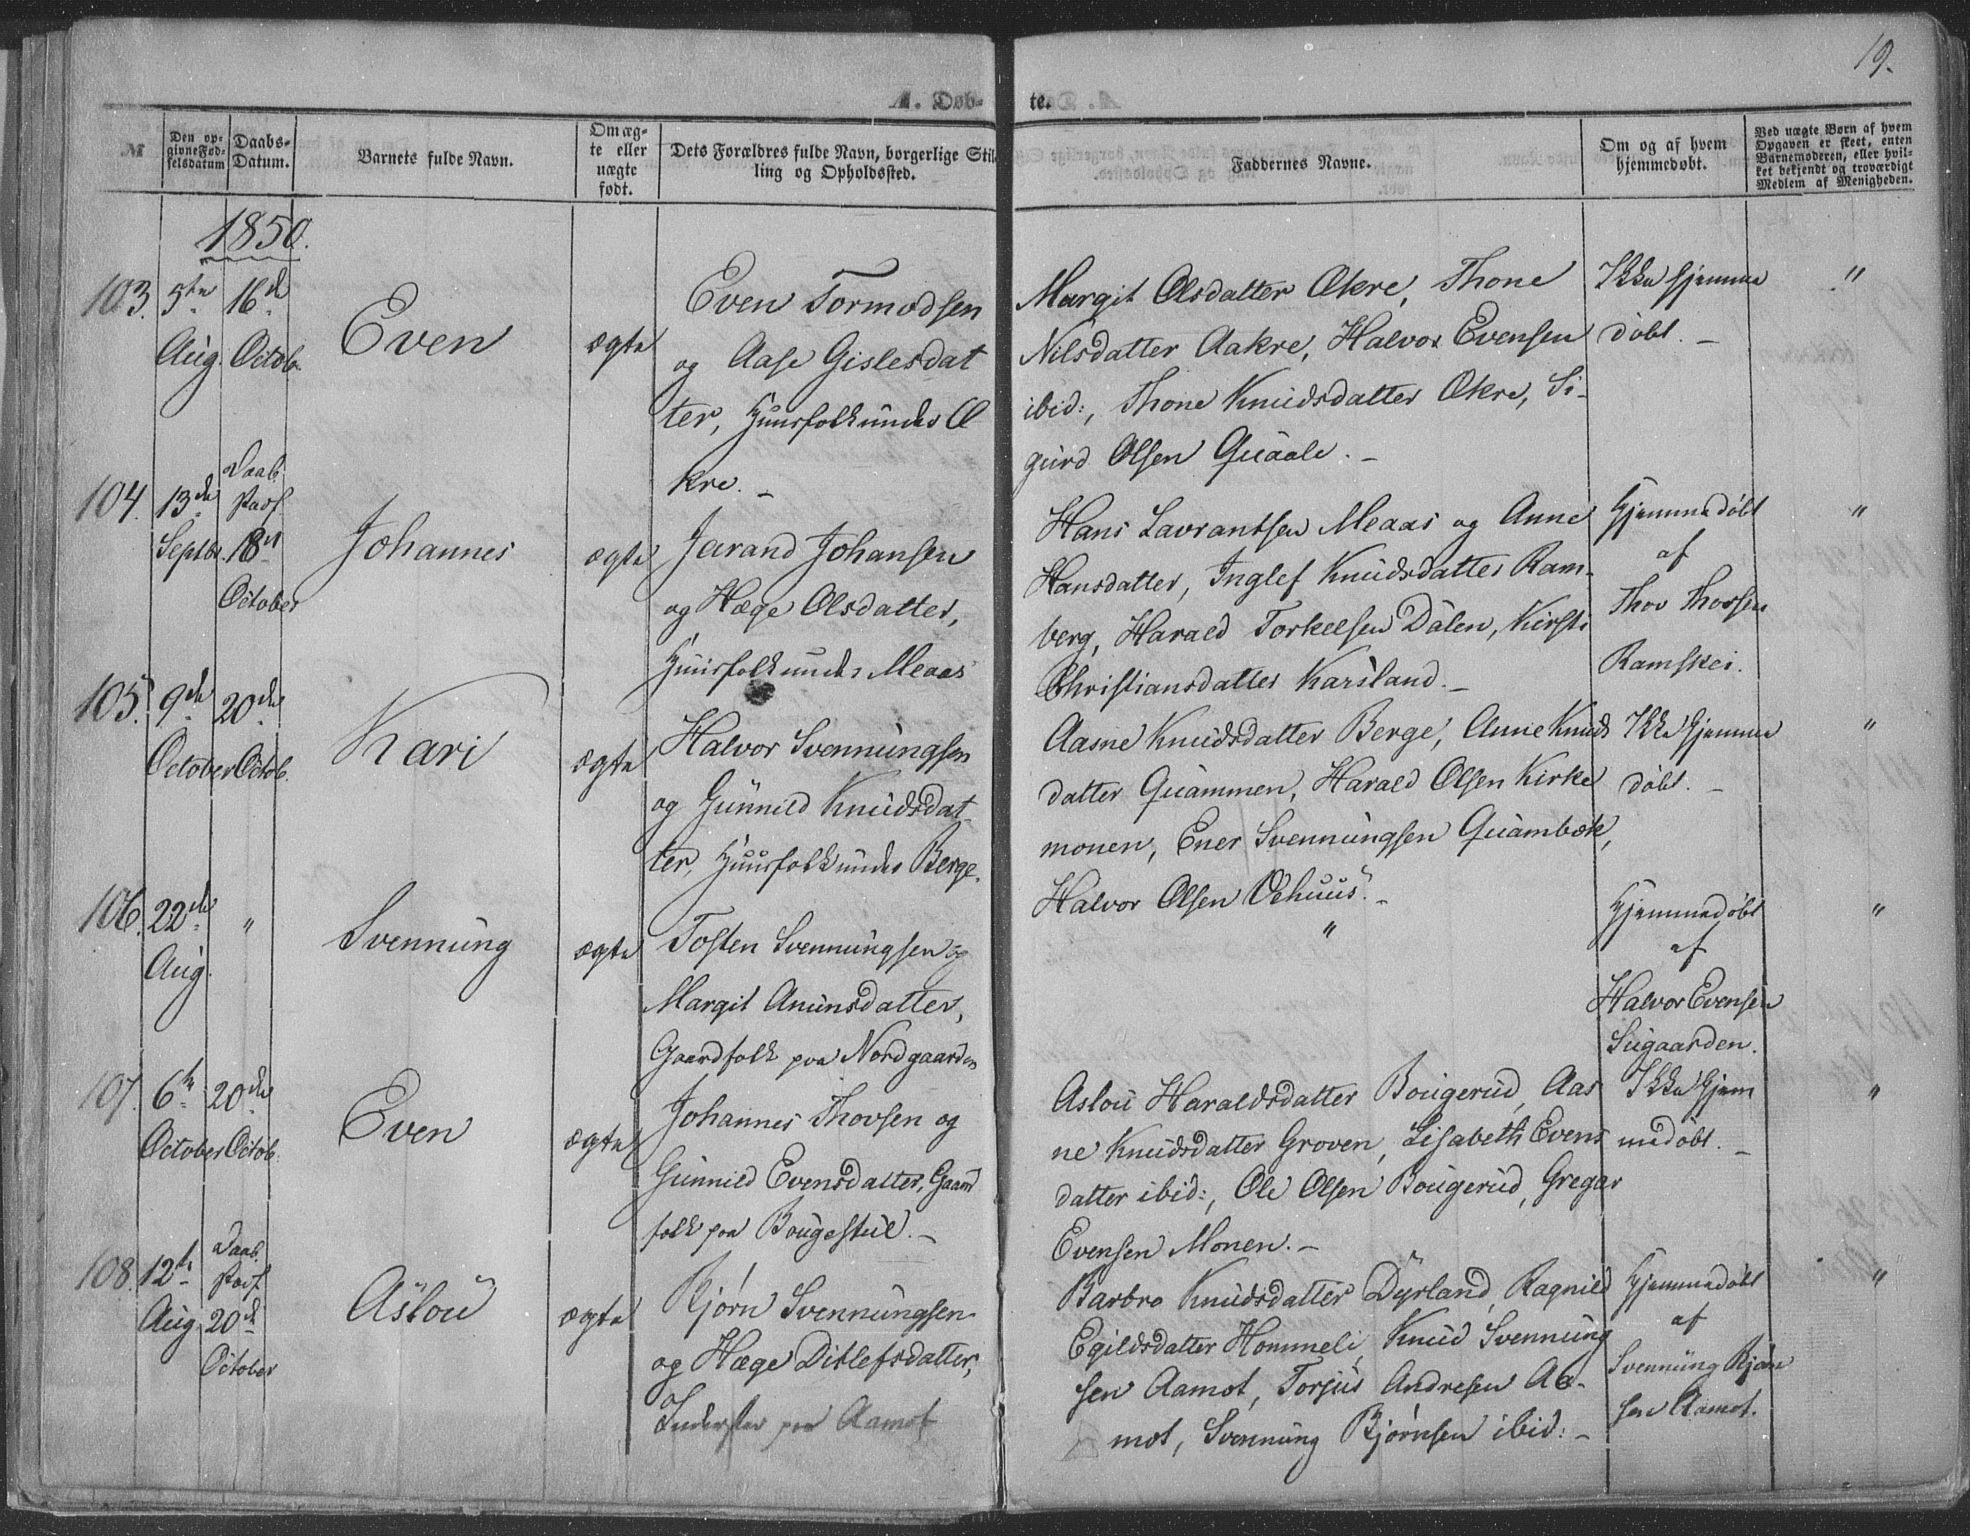 19.
A. Døb-
te.
№
Den op-
givne Fød-
selsdatum
Daabs-
Datum.
Barnets fulde Navn.
Om æg-
te eller
uægte
født.
Dets Forældres fulde Navn, borgerlige Stil-
ling og Opholdssted.
Faddernes Navne.
Om og af hvem
hjemmedøbt.
Ved uægte Børn af hvem
Opgaven er skeet, enten
Barnemoderen, eller hvil-
ket bekjendt og troværdigt
Medlem af Menigheden.
1850.
103.
5te
Aug.
16de
Octob.
Even
ægte
Even Tormodsen
og Aase Gislesdat
ter, Huusfolk under Æ
kre. –
Margit Olsdatter Ækre, Thone
Nilsdatter Aakre, Halvor Evensen
ibid:, Thone Knudsdatter Ækre, Si-
gurd Olsen Quaale. –
Ikke hjemme
døbt. –
"
104.
13de
Septbr.
Daab
Stadf.
18de
October
Johannes
ægte
Jarand Johansen
og Hæge Olsdatter,
Huusfolk under Meaas
Hans Lavrantsen Meaas og Anne
Hansdatter, Inglef Knudsdatter Ram-
berg, Harald Torkelsen Dalen, Kirsti
Christiansdatter Karsland. –
Hjemmedøbt
af
Thov Thovsen
Ramskei.
"
105.
9de
October
20de
Octob.
Kari
ægte
Halvor Svennungsen
og Gunnild Knudsdat-
ter, Huusfolk under Berge.
Aasne Knudsdatter Berge, Anne Knuds
datter Quammen, Harald Olsen Kirke
monen, Ener Svennungsen Quambæk,
Halvor Olsen Øehuus. –
Ikke hjemme
døbt. –
"
106.
22de
Aug.
"
Svennung
ægte
Tosten Svennungsen og
Margit Anunsdatter,
Gaardfolk paa Nordgaarden
"
Hjemmedøbt
af
Halvor Evensen
Sugaarden.
"
107.
6te
October
20de
Octob.
Even
ægte
Johannes Thovsen og
Gunnild Evensdatter, Gaard
folk paa Bougestul. –
Aslou Haraldsdatter Bougerud, Aas
ne Knudsdatter Groven, Lisabeth Evens
datter ibid:, Ole Olsen Bougerud, Gregar
Evensen Monen. –
Ikke hjem
medøbt. –
"
108.
12te
Aug.
Daab.
Stadf.
20de
October
Aslou
ægte
Bjørn Svennungsen
og Hæge Ditlefsdatter,
Inderster paa Aamot
Barbro Knudsdatter Dyrland, Ragnild
Egildsdatter Hommeli, Knud Svennung
sen Aamot, Torjus Andresen Aa-
mot, Svennung Bjørnsen ibid: –
Hjemmedøbt
af
Svennung Bjørn
sen Aamot.
"